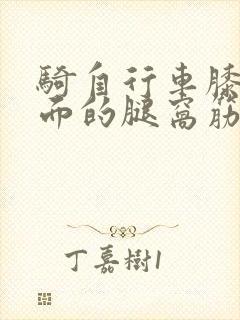 騎自行車膝
而的腿窩筋
丁嘉樹1